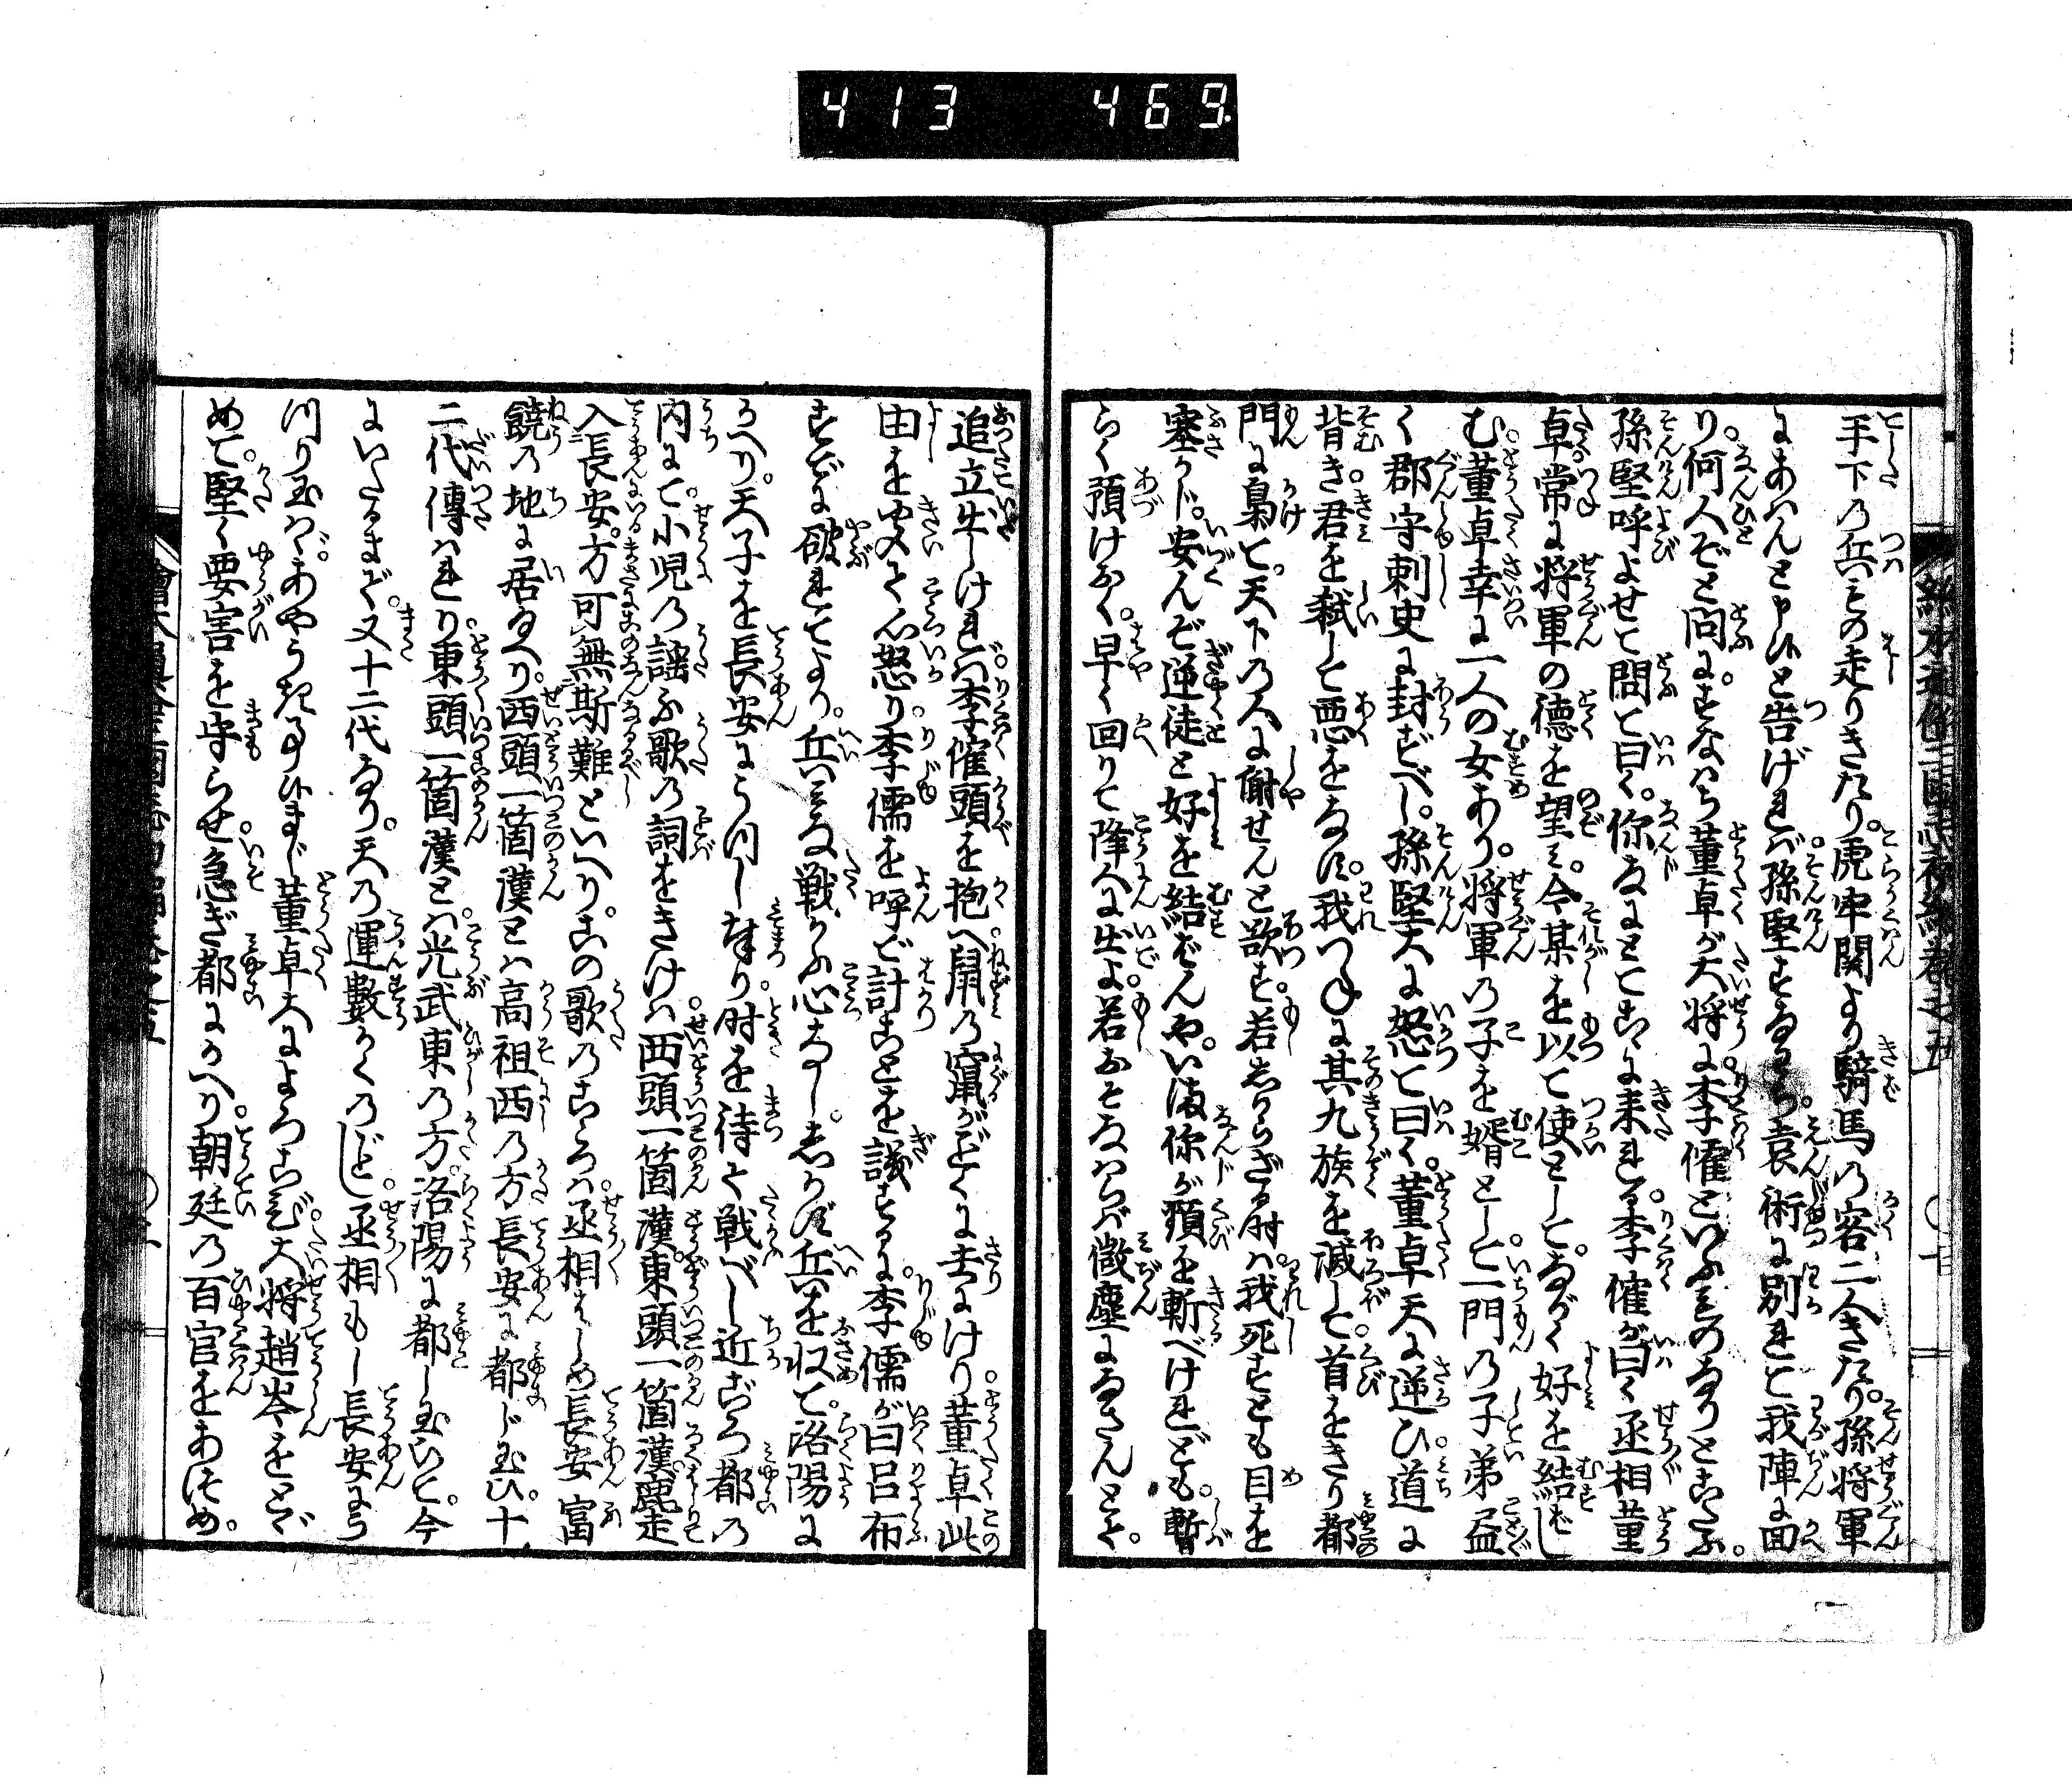 413 469.
手下の兵その走りきたり。虎牢関より騎馬の客二人きたり。孫将軍
にあはんと申候と告げれば。孫堅すなはち。袁術に別れて我陣に回
り。何人ぞと問に。すなはち董卓が大将に。李傕といふものなりとこたふ。
孫堅呼よせて問て曰く。你なにとてこゝに来れる。李傕が曰く丞相董
卓。常に将軍の徳を望み。今某を以て使として。ながく好を結ばし
む。董卓幸に一人の女あり。将軍の子を婿として。一門の子弟盡
く郡守刺史に封ずべし。孫堅大に怒て曰く。董卓天に逆ひ。道に
背き。君を弑して悪をなす。我つねに其九族を滅して。首をきり都
門に梟て。天下の人に謝せんと欲す。若しからざる時は。我死すとも目を
塞がじ。安んぞ逆徒と好を結ばんや。いま你が頭を斬べけれども。暫
らく預けおく。早く回りて降人に出よ。若おそなはらば微塵になさんとぞ。
追立出しければ。李傕頭を抱へ。鼠の竄がごとくに去にけり。董卓此
由を聞て。心怒り。李儒を呼で計ことを議するに。李儒が曰呂布
すでに破れてより。兵みな戦ふ心なし。しかず兵を収て。洛陽に
かへり。天子を長安にうつし奉り。時を待て戦べし近ごろ都の
内にて。小児の謡ふ歌の詞をきけば。西頭一箇漢。東頭一箇漢。鹿走
入長安。方可無斯難といへり。この歌のこゝろは。丞相はじめ長安富
饒の地に居たへり。西頭一箇漢とは高祖西の方長安に都し玉ひ。十
二代傳はれり。東頭一箇漢とは。光武東の方。洛陽に都し玉ひて。今
にいたるまで。又十二代なり。天の運數かくのごとし。丞相もし長安にう
つり玉はゞ。あやうき事候まじ。董卓大によろこび。大将趙岑をとゞ
めて。堅く要害を守らせ。急ぎ都にかへり。朝廷の百官をあつめ。